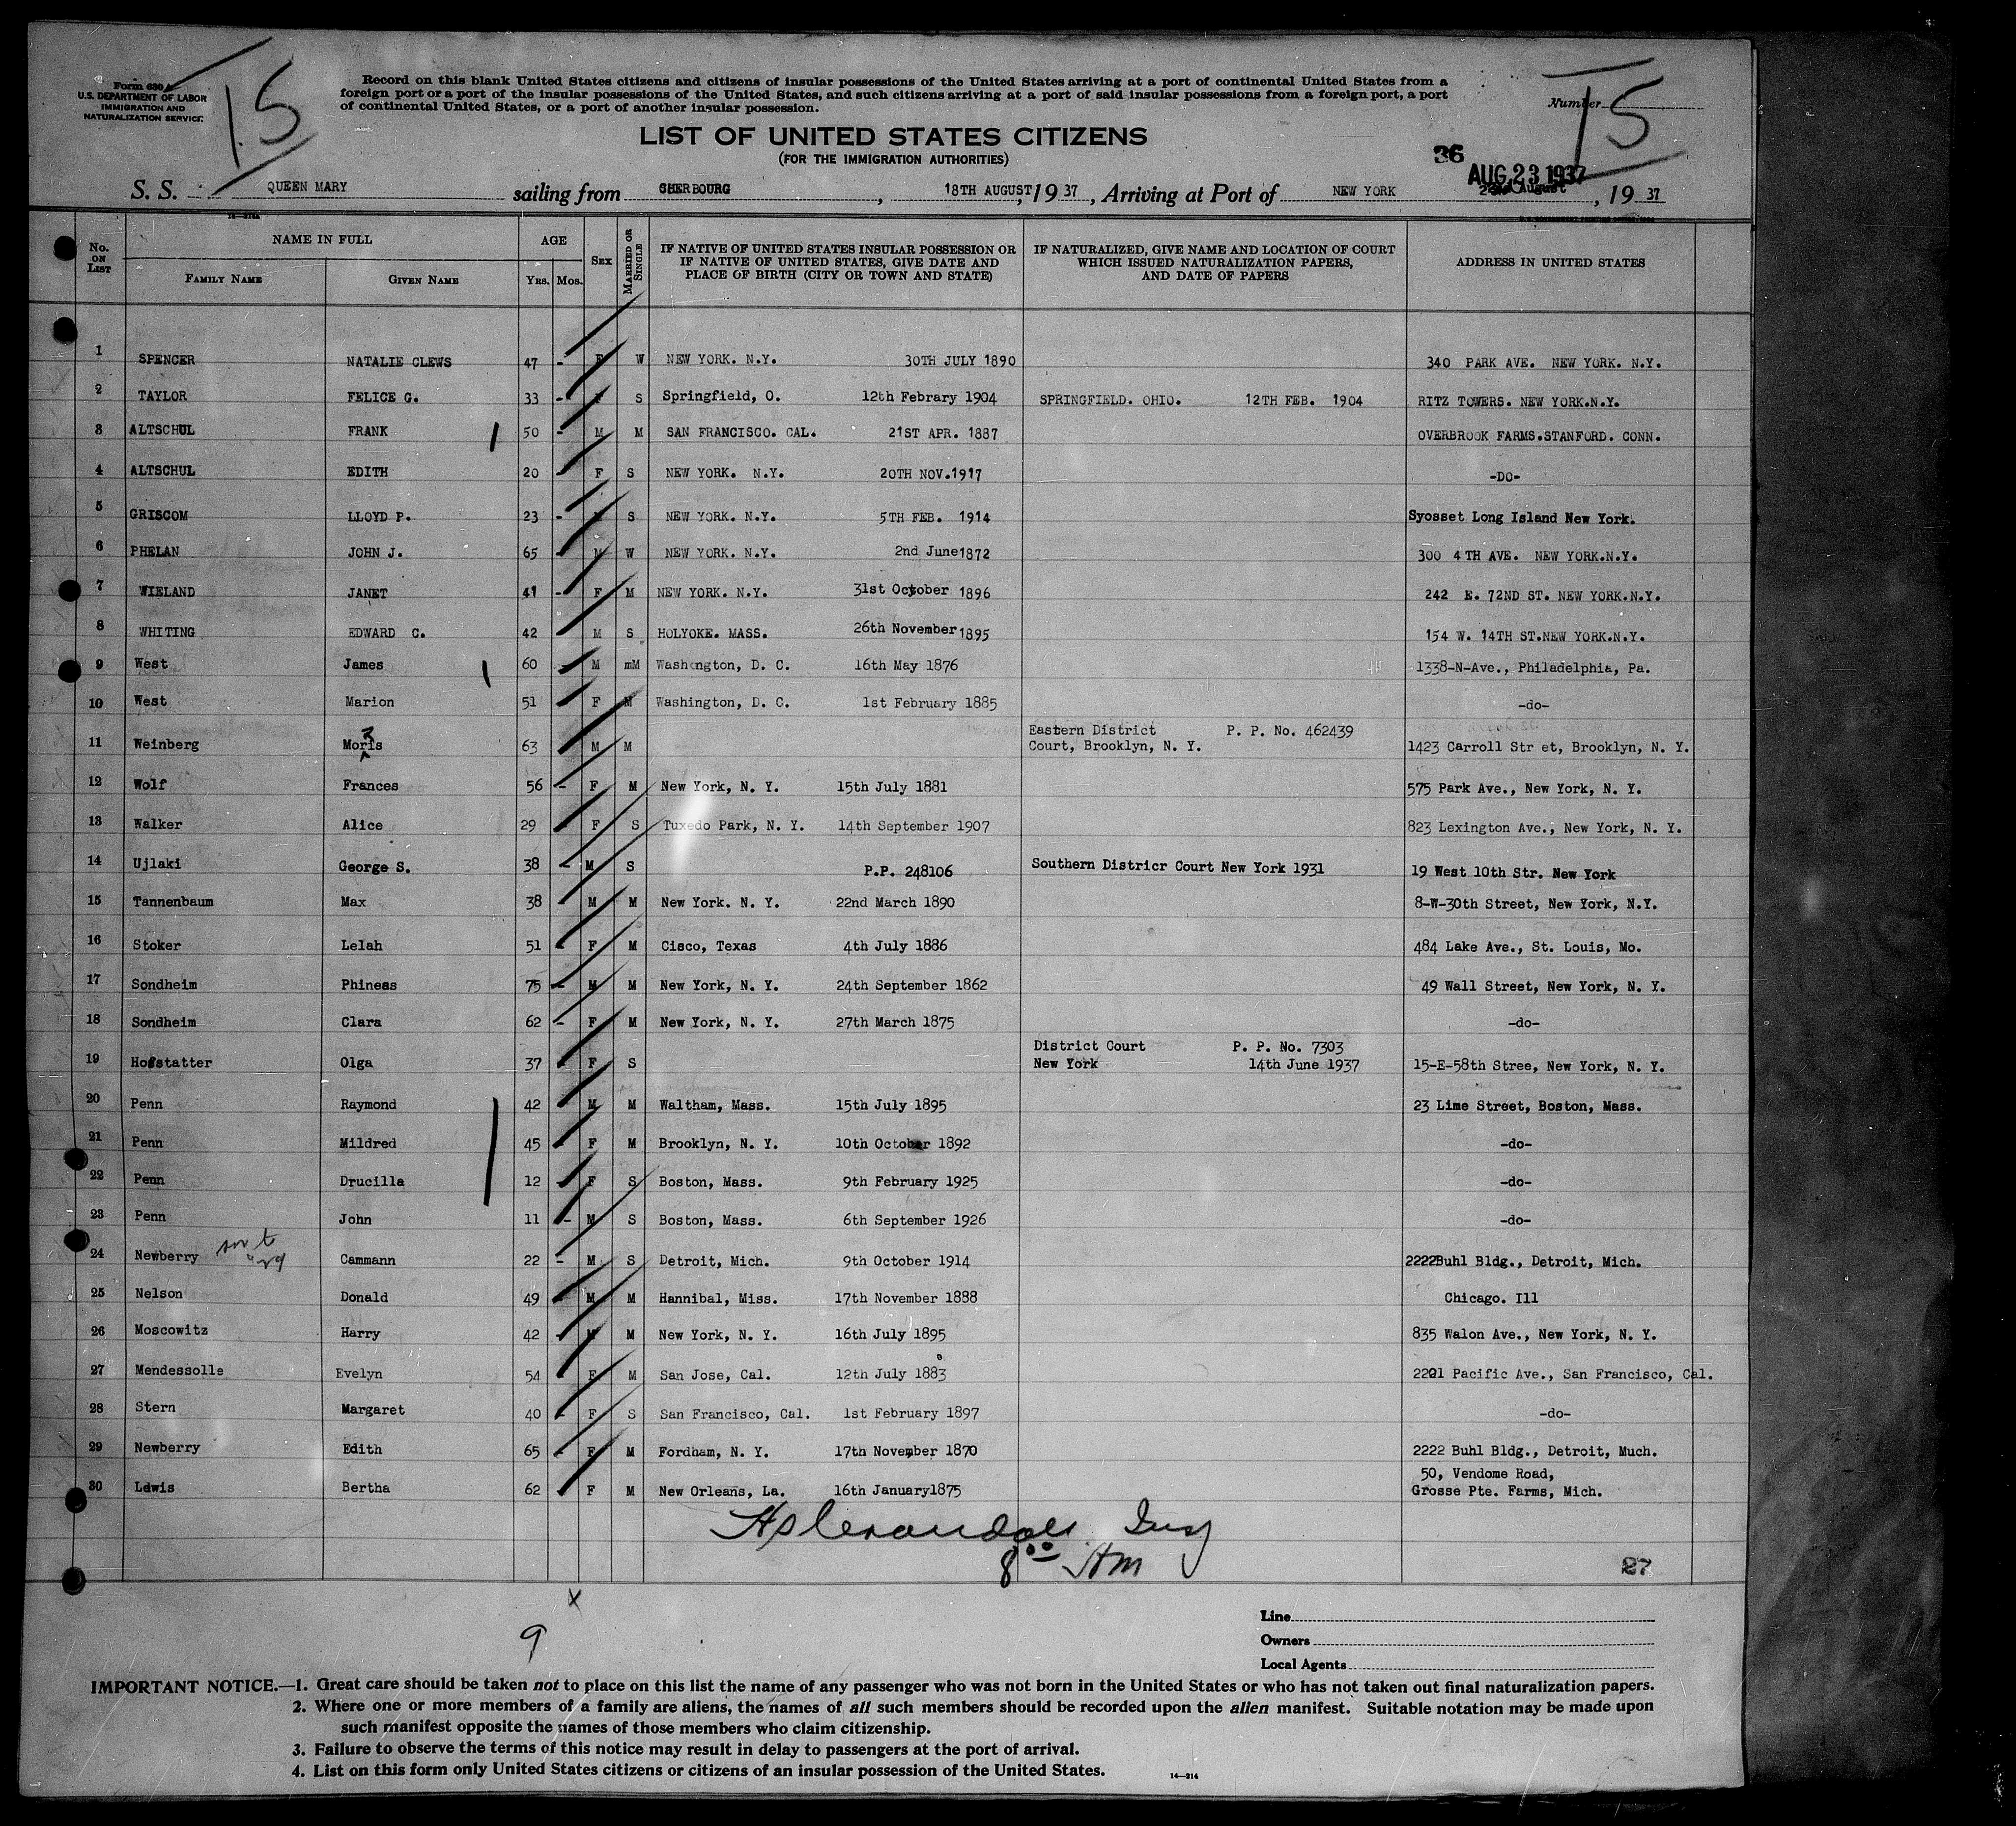 Form 630
U.S. DEPARTMENT OF LABOR
IMMIGRATION AND
NATURALIZATION SERVICE
15
Record on this blank United States citizens and citizens of insular possessions of the United States arriving at a port of continental United States from a
foreign port or a port of the insular possessions of the United States, and such citizens arriving at a port of said insular possessions from a foreign port, a port
of continental United States, or a port of another insular possession.
Number
15
LIST OF UNITED STATES CITIZENS
(FOR THE IMMIGRATION AUTHORITIES)
36
AUG 23 1937
S. S. QUEEN MARY sailing from CHERBOURG, 18TH AUGUST, 19 37, Arriving at Port of NEW YORK 23rd August, 19 37
No. ON LIST NAME IN FULL AGE SEX MARRIED OR SINGLE IF NATIVE OF UNITED STATES INSULAR POSSESSION OR IF NATIVE OF UNITED STATES, GIVE DATE AND PLACE OF BIRTH (CITY OR TOWN AND STATE) IF NATURALIZED, GIVE NAME AND LOCATION OF COURT WHICH ISSUED NATURALIZATION PAPERS, AND DATE OF PAPERS ADDRESS IN UNITED STATES
FAMILY NAME GIVEN NAME YRS. MOS.
1 SPENCER NATALIE CLEWS 47 - F W NEW YORK. N.Y. 30TH JULY 1890 340 PARK AVE. NEW YORK. N.Y.
2 TAYLOR FELICE G. 33 - F S Springfield, O. 12th Febrary 1904 SPRINGFIELD. OHIO. 12TH FEB. 1904 RITZ TOWERS. NEW YORK.N.Y.
3 ALTSCHUL FRANK 50 - M M SAN FRANCISCO. CAL. 21ST APR. 1887 OVERBROOK FARMS.STANFORD. CONN.
4 ALTSCHUL EDITH 20 - F S NEW YORK. N.Y. 20TH NOV.1917 -DO-
5 GRISCOM LLOYD P. 23 - M S NEW YORK. N.Y. 5TH FEB. 1914 Syosset Long Island New York.
6 PHELAN JOHN J. 65 - M W NEW YORK. N.Y. 2nd June1872 300 4TH AVE. NEW YORK.N.Y.
7 WIELAND JANET 41 - F M NEW YORK. N.Y. 31st October 1896 242 E. 72ND ST. NEW YORK.N.Y.
8 WHITING EDWARD C. 42 - M S HOLYOKE. MASS. 26th November1895 154 W. 14TH ST.NEW YORK.N.Y.
9 West James 60 - M mM Washington, D. C. 16th May 1876 1338-N-Ave., Philadelphia, Pa.
10 West Marion 51 - F M Washington, D. C. 1st February 1885 -do-
11 Weinberg Morris 63 M M Eastern District Court, Brooklyn, N. Y. P. P. No. 462439 1423 Carroll Str et, Brooklyn, N. Y.
12 Wolf Frances 56 - F M New York, N. Y. 15th July 1881 575 Park Ave., New York, N. Y.
13 Walker Alice 29 - F S Tuxedo Park, N. Y. 14th September 1907 823 Lexington Ave., New York, N. Y.
14 Ujlaki George S. 38 - M S P.P. 248106 Southern Districr Court New York 1931 19 West 10th Str. New York
15 Tannenbaum Max 38 - M M New York. N. Y. 22nd March 1890 8-W-30th Street, New York, N.Y.
16 Stoker Lelah 51 - F M Cisco, Texas 4th July 1886 484 Lake Ave., St. Louis, Mo.
17 Sondheim Phineas 75 - M M New York, N. Y. 24th September 1862 49 Wall Street, New York, N. Y.
18 Sondheim Clara 62 - F M New York, N. Y. 27th March 1875 -do-
19 Hofstatter Olga 37 - F S District Court New York P. P. No. 7303 14th June 1937 15-E-58th Stree, New York, N. Y.
20 Penn Raymond 42 - M M Waltham, Mass. 15th July 1895 23 Lime Street, Boston, Mass.
21 Penn Mildred 45 - F M Brooklyn, N. Y. 10th October 1892 -do-
22 Penn Drucilla 12 - F S Boston, Mass. 9th February 1925 -do-
23 Penn John 11 - M S Boston, Mass. 6th September 1926 -do-
24 Newberry Cammann 22 - M S Detroit, Mich. 9th October 1914 2222Buhl Bldg., Detroit, Mich.
25 Nelson Donald 49 - M M Hannibal, Miss. 17th November 1888 Chicago. Ill
26 Moscowitz Harry 42 - M M New York, N. Y. 16th July 1895 835 Walon Ave., New York, N. Y.
27 Mendessolle Evelyn 54 - F M San Jose, Cal. 12th July 1883 2201 Pacific Ave., San Francisco, Cal.
28 Stern Margaret 40 - F S San Francisco, Cal. 1st February 1897 -do-
29 Newberry Edith 65 - F M Fordham, N. Y. 17th November 1870 2222 Buhl Bldg., Detroit, Much.
30 Lewis Bertha 62 - F M New Orleans, La. 16th January1875 50, Vendome Road, Grosse Pte. Farms, Mich.
8⁰⁰ AM
27
x
9
Line
Owners
Local Agents
IMPORTANT NOTICE.—1. Great care should be taken not to place on this list the name of any passenger who was not born in the United States or who has not taken out final naturalization papers.
2. Where one or more members of a family are aliens, the names of all such members should be recorded upon the alien manifest. Suitable notation may be made upon
such manifest opposite the names of those members who claim citizenship.
3. Failure to observe the terms of this notice may result in delay to passengers at the port of arrival.
4. List on this form only United States citizens or citizens of an insular possession of the United States.
14—214